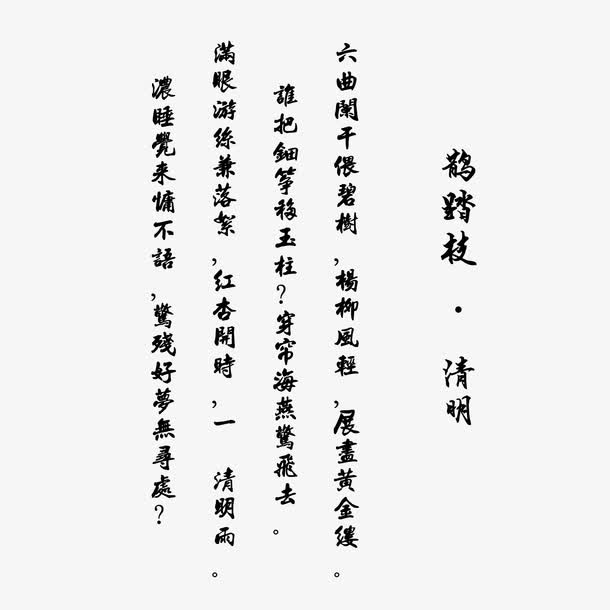 鹊踏枝 · 清明
六曲闌干偎碧樹，楊柳風輕，展盡黃金縷。
誰把鈿箏移玉柱？穿帘海燕驚飛去。
滿眼游絲兼落絮，紅杏開時，一 清明雨。
濃睡覺來慵不語，驚殘好夢無尋處？